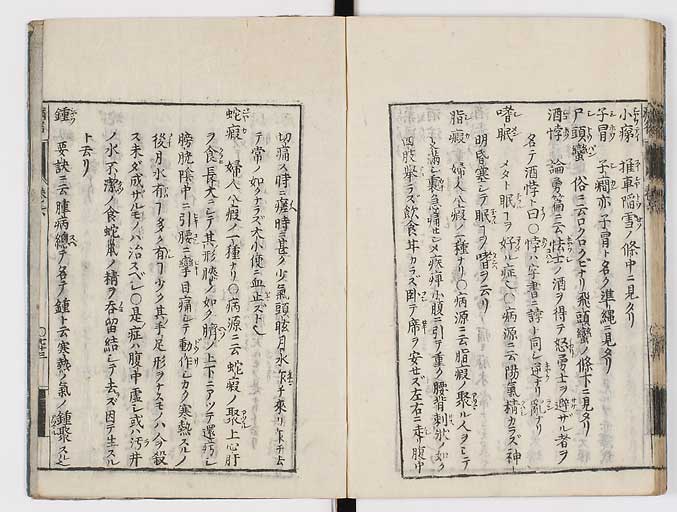 小瘰 推車陷雪ノ條中ニ見タリ
子冒 子癎亦子冒ト名ク準繩ニ見タリ
尸頭蠻 俗ニ云ロクロクビナリ飛頭蠻ノ條下ニ見タリ
酒悖 論勇篇ニ云怯士ノ酒ヲ得テ怒勇士ヲ避ザル者ヲ
名テ酒悖ト曰〇悖ハ字書ニ誖ト同シ逆ナリ亂ナリ
嗜眠 メタト眠ヿヲ好ム症〇病源ニ云陽氣精カラズ神
明昏塞シテ眠ヿヲ嗜ヲ云リ
脂瘕 婦人八瘕ノ一種ナリ〇病源ニ云脂瘕ノ聚ル人ヲシテ
支滿シ裏急痛セシメ痠痺小腹ニ引テ重ク腰背刺狀ノ如ク
四肢舉ラズ飲食甘カラズ臥テ席ヲ安セズ左右ニ走腹中
切痛ス時ニ瘥時ニ甚ク少氣頭眩月水乍チ來リ乍チ去
テ常ノ如クナラズ大小便ニ血止ズト
蛇瘕 婦人八瘕ノ一種ナリ〇病源ニ云蛇瘕ノ聚上心肝
ヲ食長大ニシテ其形膝ノ如ク臍ノ上下ニアツテ還
膀胱陰中ニ引腰ニ攣目痛シテ動作シカタク寒熱スルノ
後月水有ヿ多ク有ヿ少ク其手足形ヲナスモノハ人ヲ殺
ス未ダ成ザルモノハ治スベシ〇是症ハ腹中虛シ或ハ汚井
ノ水不潔ノ食蛇鼠ノ精ヲ呑留結シテ去ズ因テ生スル
ト云リ
鍾 要訣ニ云腫病總テ名テ鍾ト云寒熱ノ氣ノ鍾聚スル